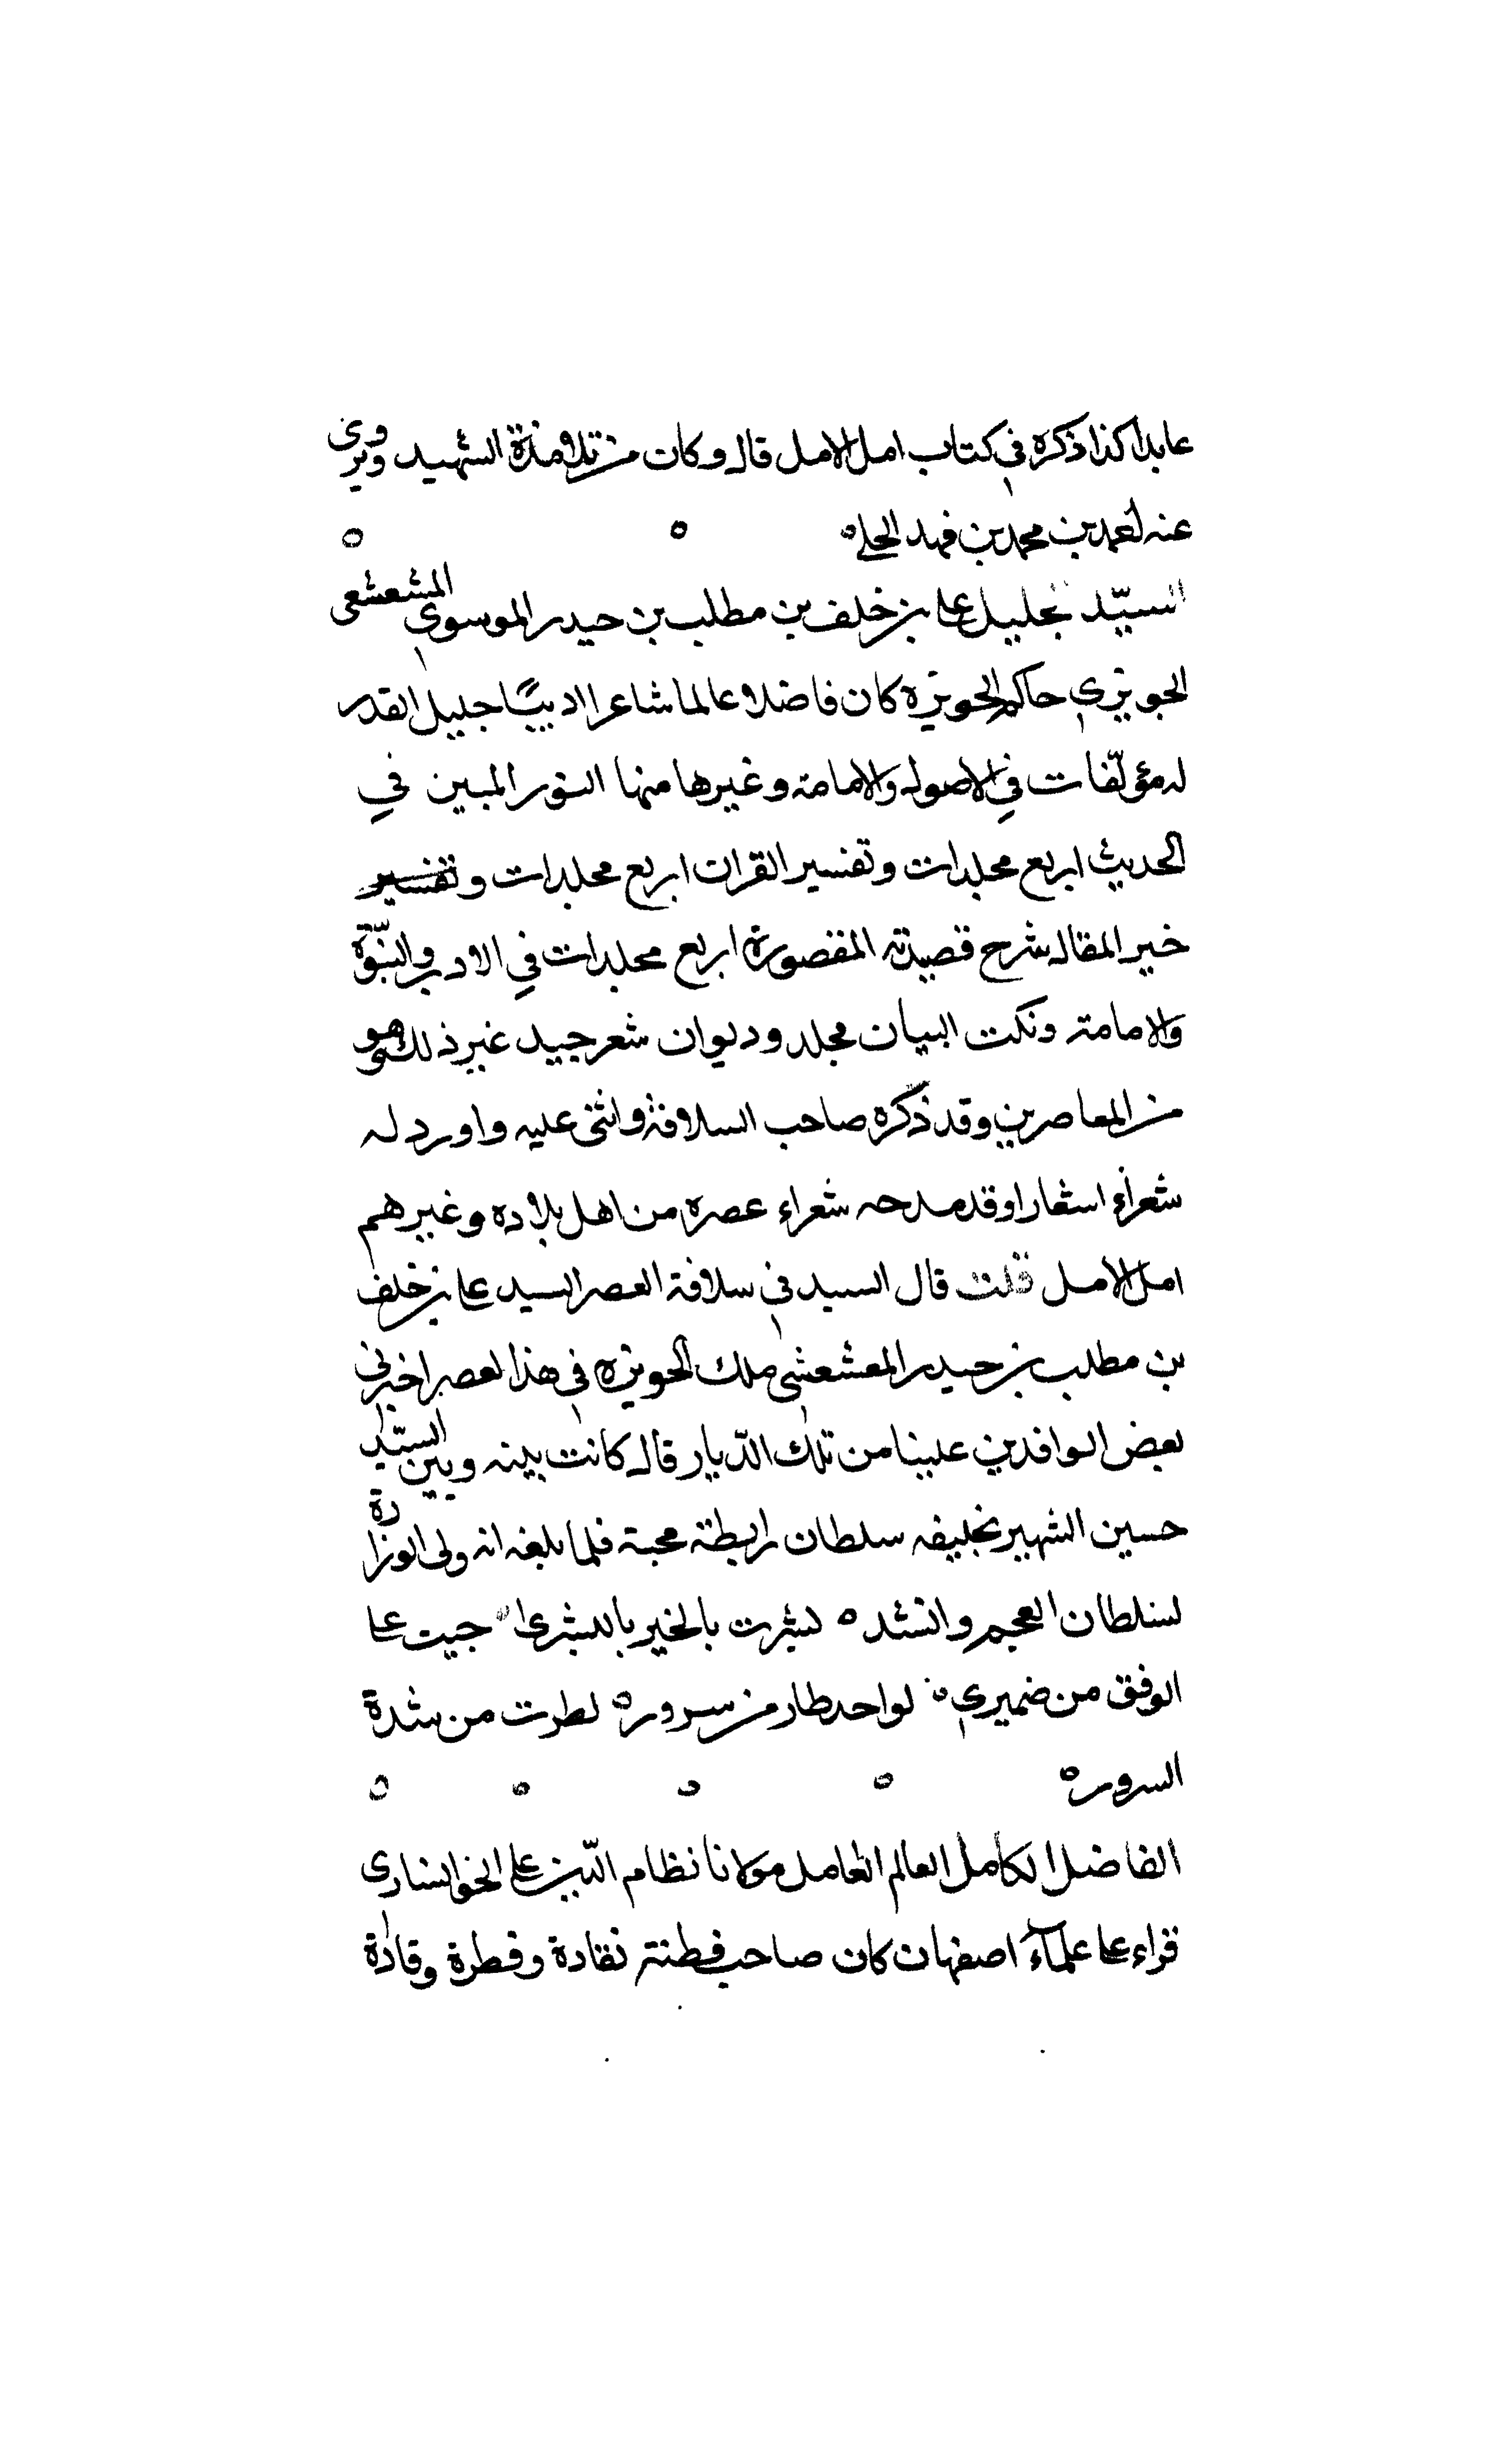 عابدا كذا ذكره في كتاب امل الامل قال وكان من تلامذة الشهيد ويروى
عنه احمد بن محمد بن فهد الحلي ه ه ه
السيّد الجليل علي بن خلف بن مطلب بن حيدر الموسوي المشعشعى
الحويزي حاكم الحويزة كان فاضلا عالما شاعرا اديبًا جليل القدر
له مؤلّفات في الاصول والامامة وغيرها منها النور المبين في
الحديث اربع مجلدات وتفسير القران اربع مجلدات وتفسير
خير المقال شرح قصيدته المقصورة اربع مجلدات في الادب والنبّوة
والامامة ونكت البيان مجلد وديوان شعر جيد غير ذلك وهو
من المعاصرين وقد ذكره صاحب السلافة واثنى عليه واورد له
شعراء اشعارا وقد مدحه شعراء عصره من اهل بلاده وغيرهم
امل الامل قلت قال السيد في سلافة العصر السيد علي بن خلف
بن مطلب بن حيدر المعشعشي ملك الحويزه في هذا العصر اخبرني
بعض الوافدين علينا من تلك الدّيار قال كانت بينه وبين السيّد
حسين الشهير بخليفه سلطان رابطة محبة فلما بلغه انه ولى الوزارة
لسلطان العجم وانشد ه بشرت بالخير يا بشرى ه جيت على
الوفق من ضميري ه لو احد طار من سروره لطرت من شدة
السرور ه ه ه ه ه
الفاضل الكامل العالم العامل مولانا نظام الدّين علي الخوانسارى
قراء على علمآء اصفهان كان صاحب فطنة نقادة وفطرة وقادة